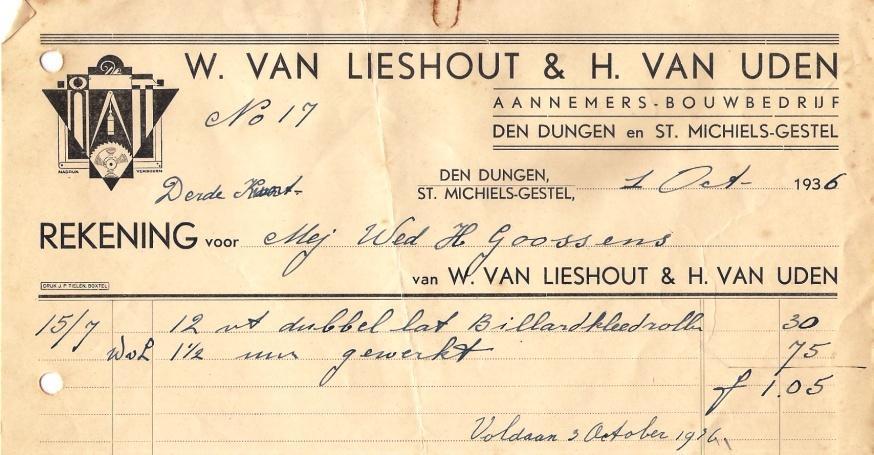 W. VAN LIESHOUT & H. VAN UDEN
AANNEMERS-BOUWBEDRIJF
DEN DUNGEN en ST. MICHIELS-GESTEL
No 17
NADRUK VERBODEN
Derde
DEN DUNGEN,
ST. MICHIELS-GESTEL, 1 Oct- 1936
REKENING voor Mej Wed H Goossens
van W. VAN LIESHOUT & H. VAN UDEN
DRUK J. P. TIELEN, BOXTEL
15/7 12 vt dubbel lat Billardkleedrolle 30
WvL 1½ uur gewerkt 75
f 1.05
Voldaan 3 October 1936